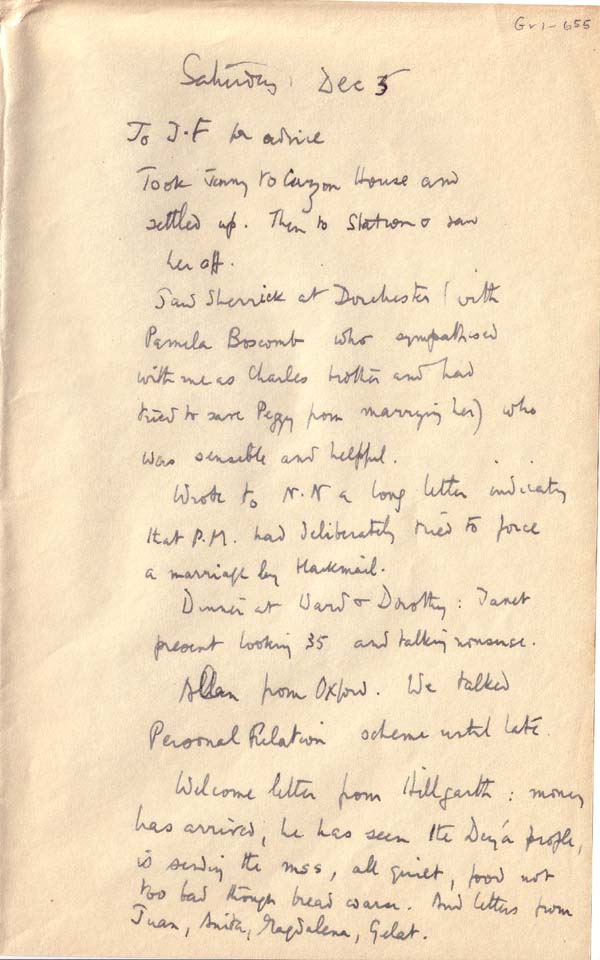 Gr1-655
Saturday, Dec 5
To J.F for advice
Took Jenny to Curzon House and
settled up. Then to Station & saw
her off.
Saw Sherrick at Dorchester (with
Pamela Boscomb who sympathised
with me as Charles brother and had
tried to save Peggy from marrying her) who
was sensible and helpful.
Wrote to N.N a long letter indicating
that P.M. had deliberately tried to force
a marriage by blackmail.
Dinner at Ward & Dorothy: Janet
present looking 35 and talking nonsense.
Allan from Oxford. We talked
Personal Relation scheme until late.
Welcome letter from Hillgarth: money
has arrived, he has seen the Deyá people,
is sending the mss, all quiet, food not
too bad though bread coarse. And letters from
Juan, Anita, Magdalena, Gelat.